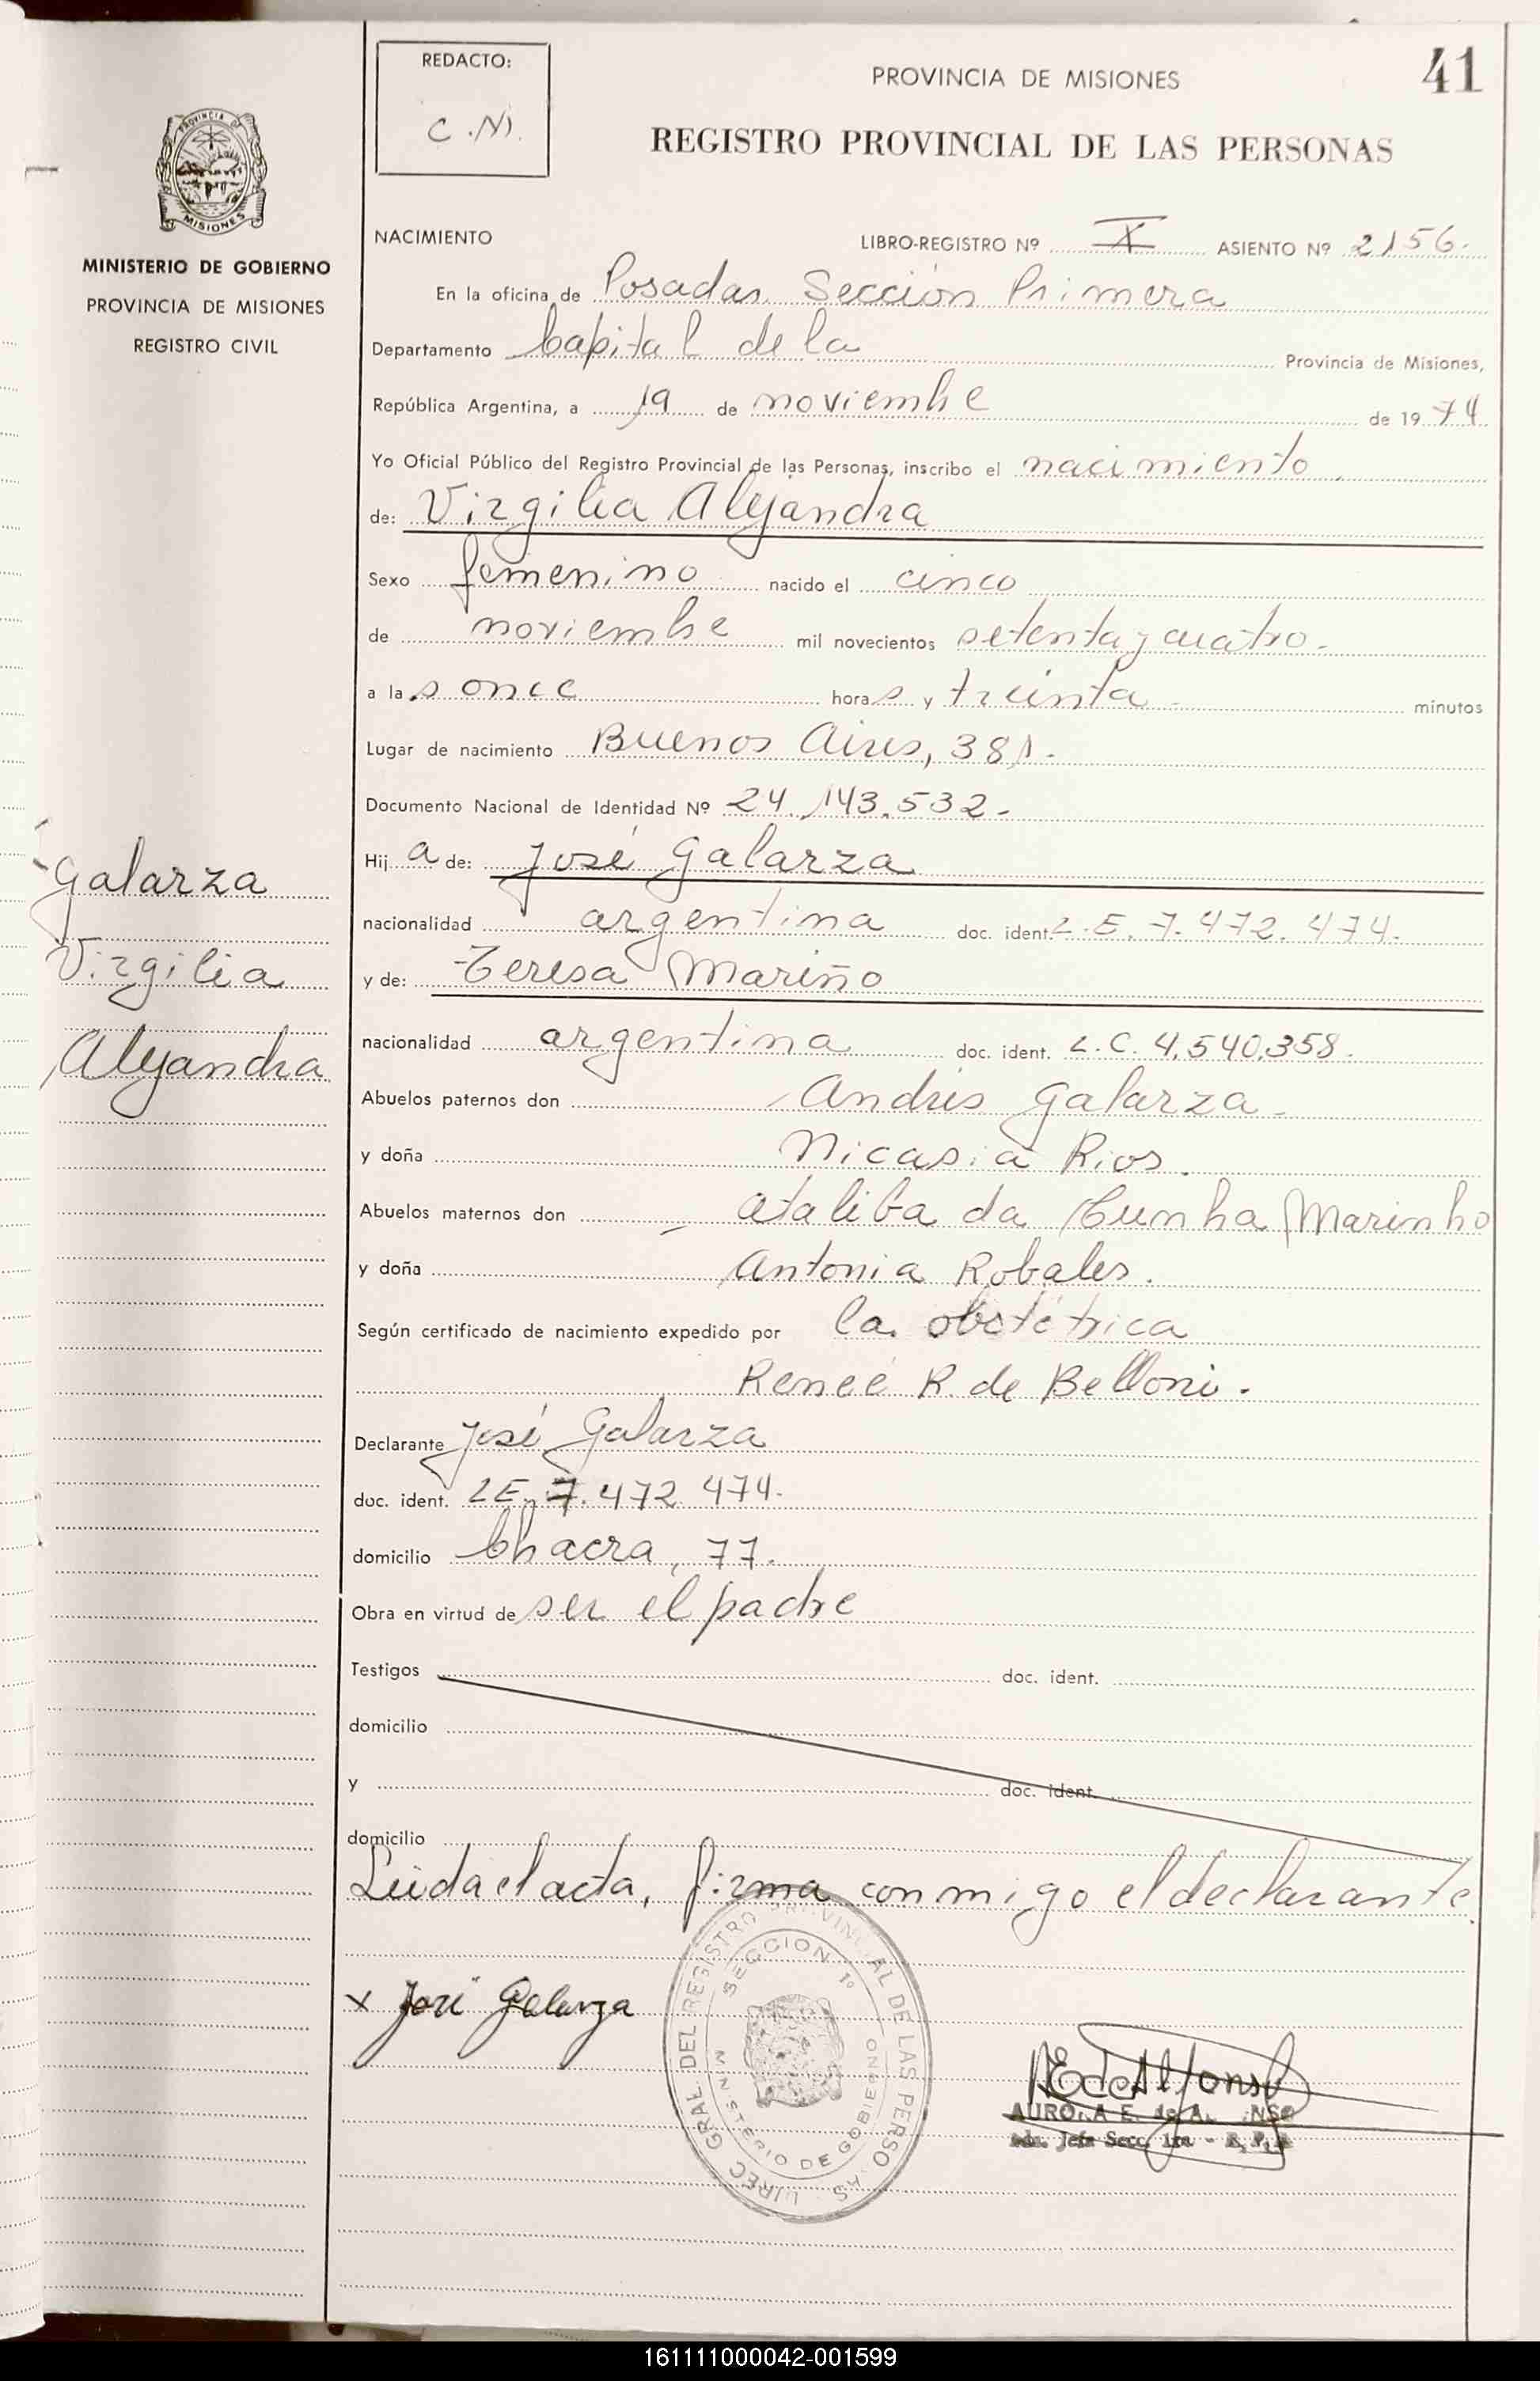 REDACTO:
C.N.
PROVINCIA DE MISIONES
41
REGISTRO PROVINCIAL DE LAS PERSONAS
PROVINCIA DE
MISIONES
MINISTERIO DE GOBIERNO
PROVINCIA DE MISIONES
REGISTRO CIVIL
NACIMIENTO LIBRO-REGISTRO Nº X ASIENTO Nº 2156.
En la oficina de Posadas Sección Primera
Departamento Capital de la Provincia de Misiones,
República Argentina, a 19 de noviembre de 1974
Yo Oficial Público del Registro Provincial de las Personas, inscribo el nacimiento
de: Virgilia Alejandra
Sexo femenino nacido el cinco
de noviembre mil novecientos setenta y cuatro.
a las once horas y treinta minutos
Lugar de nacimiento Buenos Aires, 381.
Documento Nacional de Identidad Nº 24.143.532.
Hija de: José Galarza
nacionalidad argentina doc. ident. L.E. 7.472.474.
y de: Teresa Mariño
nacionalidad argentina doc. ident. L.C. 4.540.358.
Abuelos paternos don Andrés Galarza
y doña Nicasia Rios.
Abuelos maternos don Ataliba da Cunha Marinho
y doña Antonia Robales.
Según certificado de nacimiento expedido por la obstétrica
Reneé R. de Belloni.
Declarante José Galarza
doc. ident. LE. 7.472.474.
domicilio Chacra, 77.
Obra en virtud de ser el padre
Testigos doc. ident.
domicilio
y doc. ident.
domicilio
Leida el acta, firma conmigo el declarante.
Galarza
Virgilia
Alejandra
x José Galarza
DIREC. GRAL. DEL REGISTRO PROVINCIAL DE LAS PERSONAS
SECCION 1º
MINISTERIO DE GOBIERNO
E de Alfonso
AURORA E. de ALFONSO
Jefa Secc. 1ra - R.P.P.
161111000042-001599